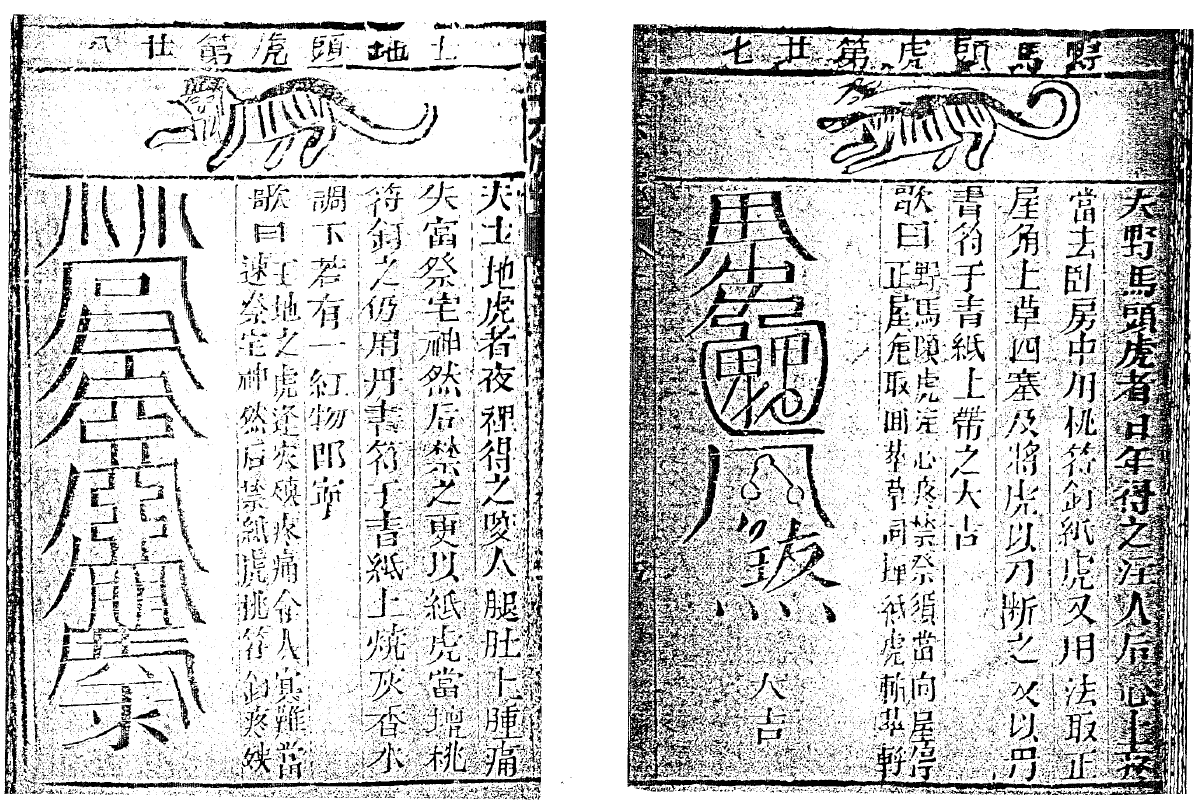 野馬頭虎第廿七
夫野馬頭虎者日年得之注人后心上疼
當去卧房中用桃符釘紙虎又用法取正
屋角上草四塞及將虎以刀断之又以丹
書符于青紙上帶之大吉
歌曰野馬頭虎注心疼禁祭須當向屋停
正屋角取四草同埋紙虎斬
大吉
土地頭虎第廿八
夫土地虎者夜裡得之变人腿肚上腫痛
先當祭宅神然后禁之更以紙虎當壇桃
符釘之仍用丹書符于青紙上燒灰香水
調下若有一紅物即寧
歌曰土地之虎逆灾殃疼痛令人實難當
速祭宅神然后禁紙虎桃符釘疼殃